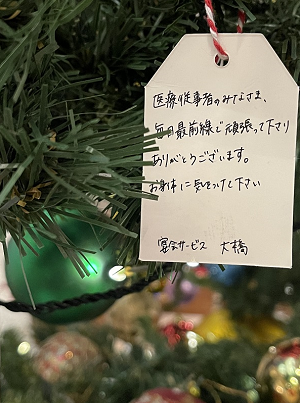 医療従事者のみなさま、
毎日最前線で頑張って下さり
ありがとうございます。
お身体に気をつけて下さい
サービス 大橋